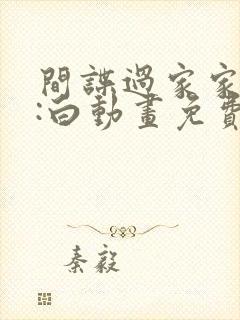 間諜過家家
:白動畫免費
秦毅